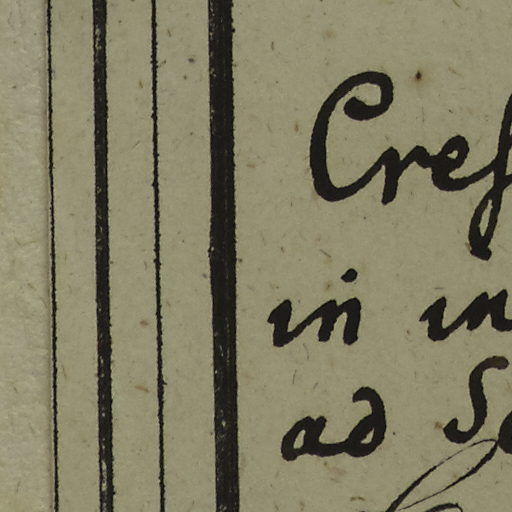 Cres
in in
ad Se